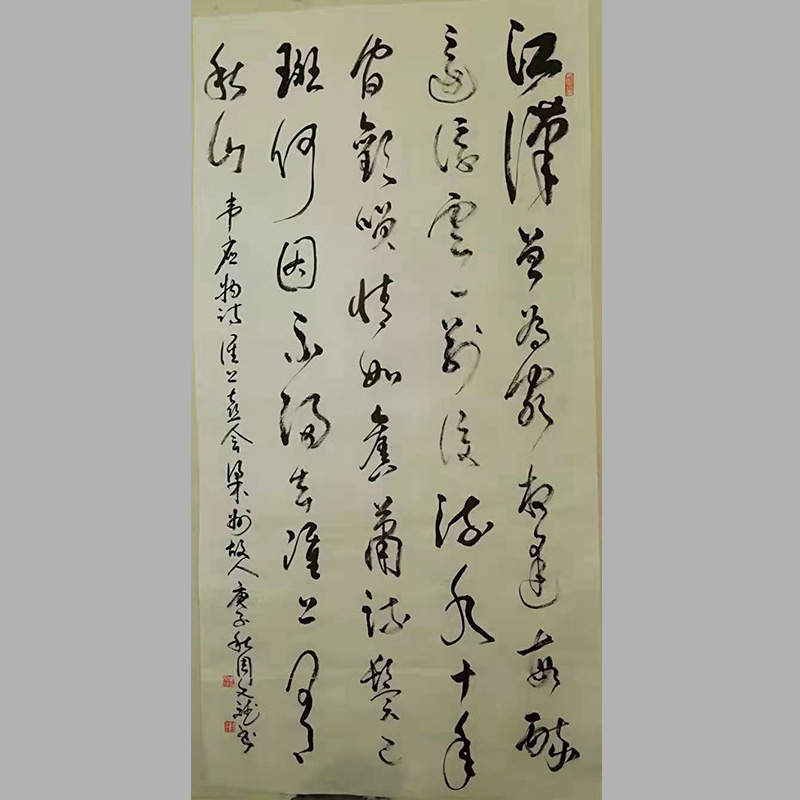 江漢曾為客相逢每醉
還浮雲一別後流水十年
間歡笑情如舊蕭疏鬢已
斑何因不歸去淮上有
秋山 韦应物诗淮上喜会梁州故人 庚子秋周文斌书